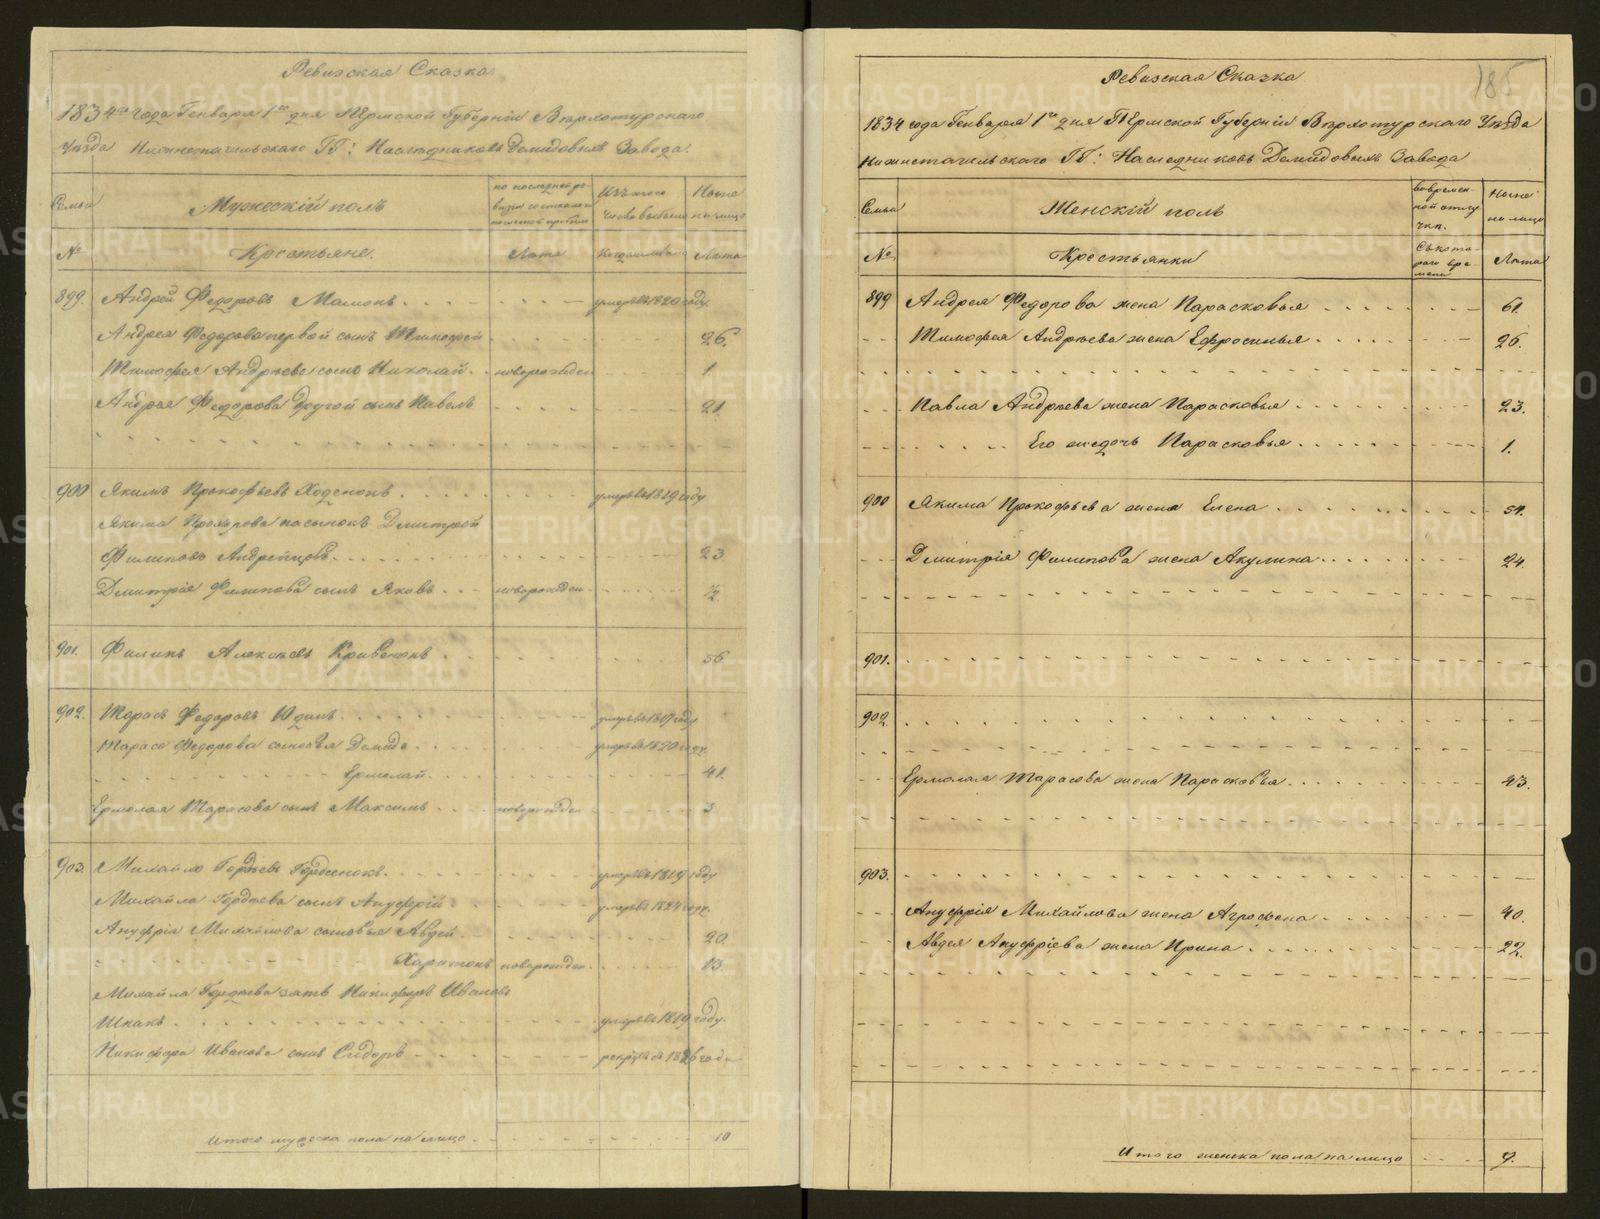 Ревизская Сказка
1834го года Генваря 1го дня Пермской Губерніи Верхотурскаго
Уезда Нижнетагильскаго ГГ: Наследниковъ Демидовыхъ Завода.
Семьи
Мужескій полъ
по последней ревизіи состояло и после оной прибыло
Изъ того числа выбыло
Ныне на лицо
№
Крестьяне.
Лета
Когда именно
Лета
899. Андрей Федоровъ Мамонъ умеръ въ 1820 году.
Андрея Федорова первой сынъ Тимофей 26.
Тимофея Андреева сынъ Николай новорожден 1
Андрея Федорова другой сынъ Павелъ 21.
900 Якимъ Прокофьевъ умеръ въ 1819 году
Якима пасынокъ Дмитрей
Филиповъ 23
Дмитрія Филипова сынъ Яковъ новорожден ½.
901. Филипъ 56.
902. Тарасъ Федоровъ Юдинъ умеръ въ 1819 году
Тараса Федорова сыновья Демидъ умеръ въ 1820 году.
Ермолай 41.
Ермолая Тарасова сынъ Максимъ новорожден 3.
903. Михайло Гордеевъ умеръ въ 1819 году
Михайла Гордеева сынъ Ануфрій умеръ въ 1824 году.
Ануфрія Михайлова сыновья Авдей 20.
Харитонъ новорожден 13.
Михайла Гордеева зять Никифоръ Ивановъ
умеръ въ 1819 году.
Никифора Иванова сынъ Сидоръ рекрутъ въ 1826 году
Итого мужеска пола на лицо 10
185
Ревизская Сказка
1834 года Генваря 1го дня Пермской Губерніи Верхотурскаго Уезда
Нижнетагильскаго ГГ: Наследниковъ Демидовыхъ Завода
Семьи
Женскій полъ
во временной отлучки.
Ныне на лицо
№.
Крестьянки
Съ котораго времени
Лета
899 Андрея Федорова жена Парасковья 61.
Тимофея Андреева жена Ефросинья 26.
Павла Андреева жена Парасковья 23.
Его жедочь Парасковья 1.
900 Якима Прокофьева жена Елена 54.
Дмитрія Филипова жена Акулина 24.
901.
902.
Ермолая Тарасова жена Парасковья 43.
903.
Ануфрія Михайлова жена Агрофена 40.
Авдея Ануфріева жена Ирина 22.
Итого женска пола на лицо 9.
METRIKI.GASO-URAL.RU